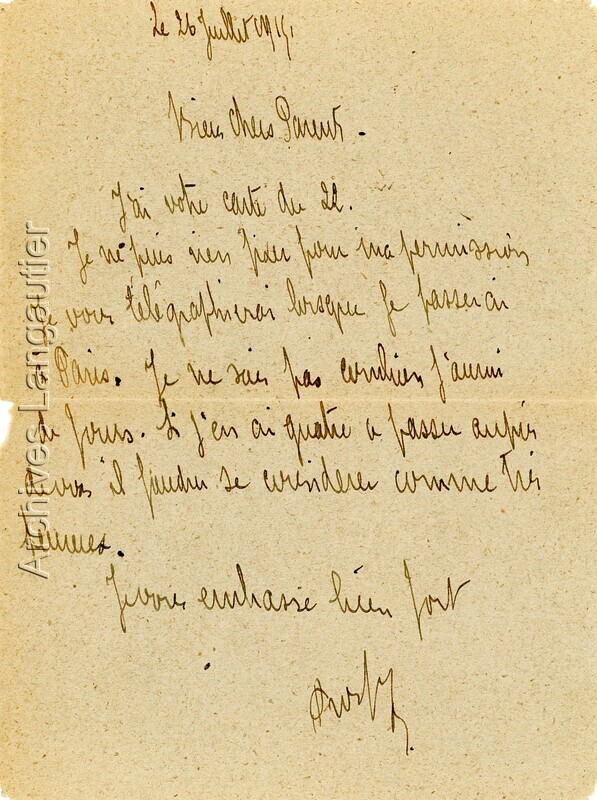 Le 26 Juillet 1915
Bien chers Parents.
J'ai votre carte du 22.
Je ne puis rien fixer pour ma permission
Je vous télégraphierai lorsque je passerai
à Paris. Je ne sais pas combien j'aurai
de jours. Si j'en ai quatre à passer auprès
de vous il faudra se considérer comme très
heureux.
Je vous embrasse bien fort
Archives Langautier